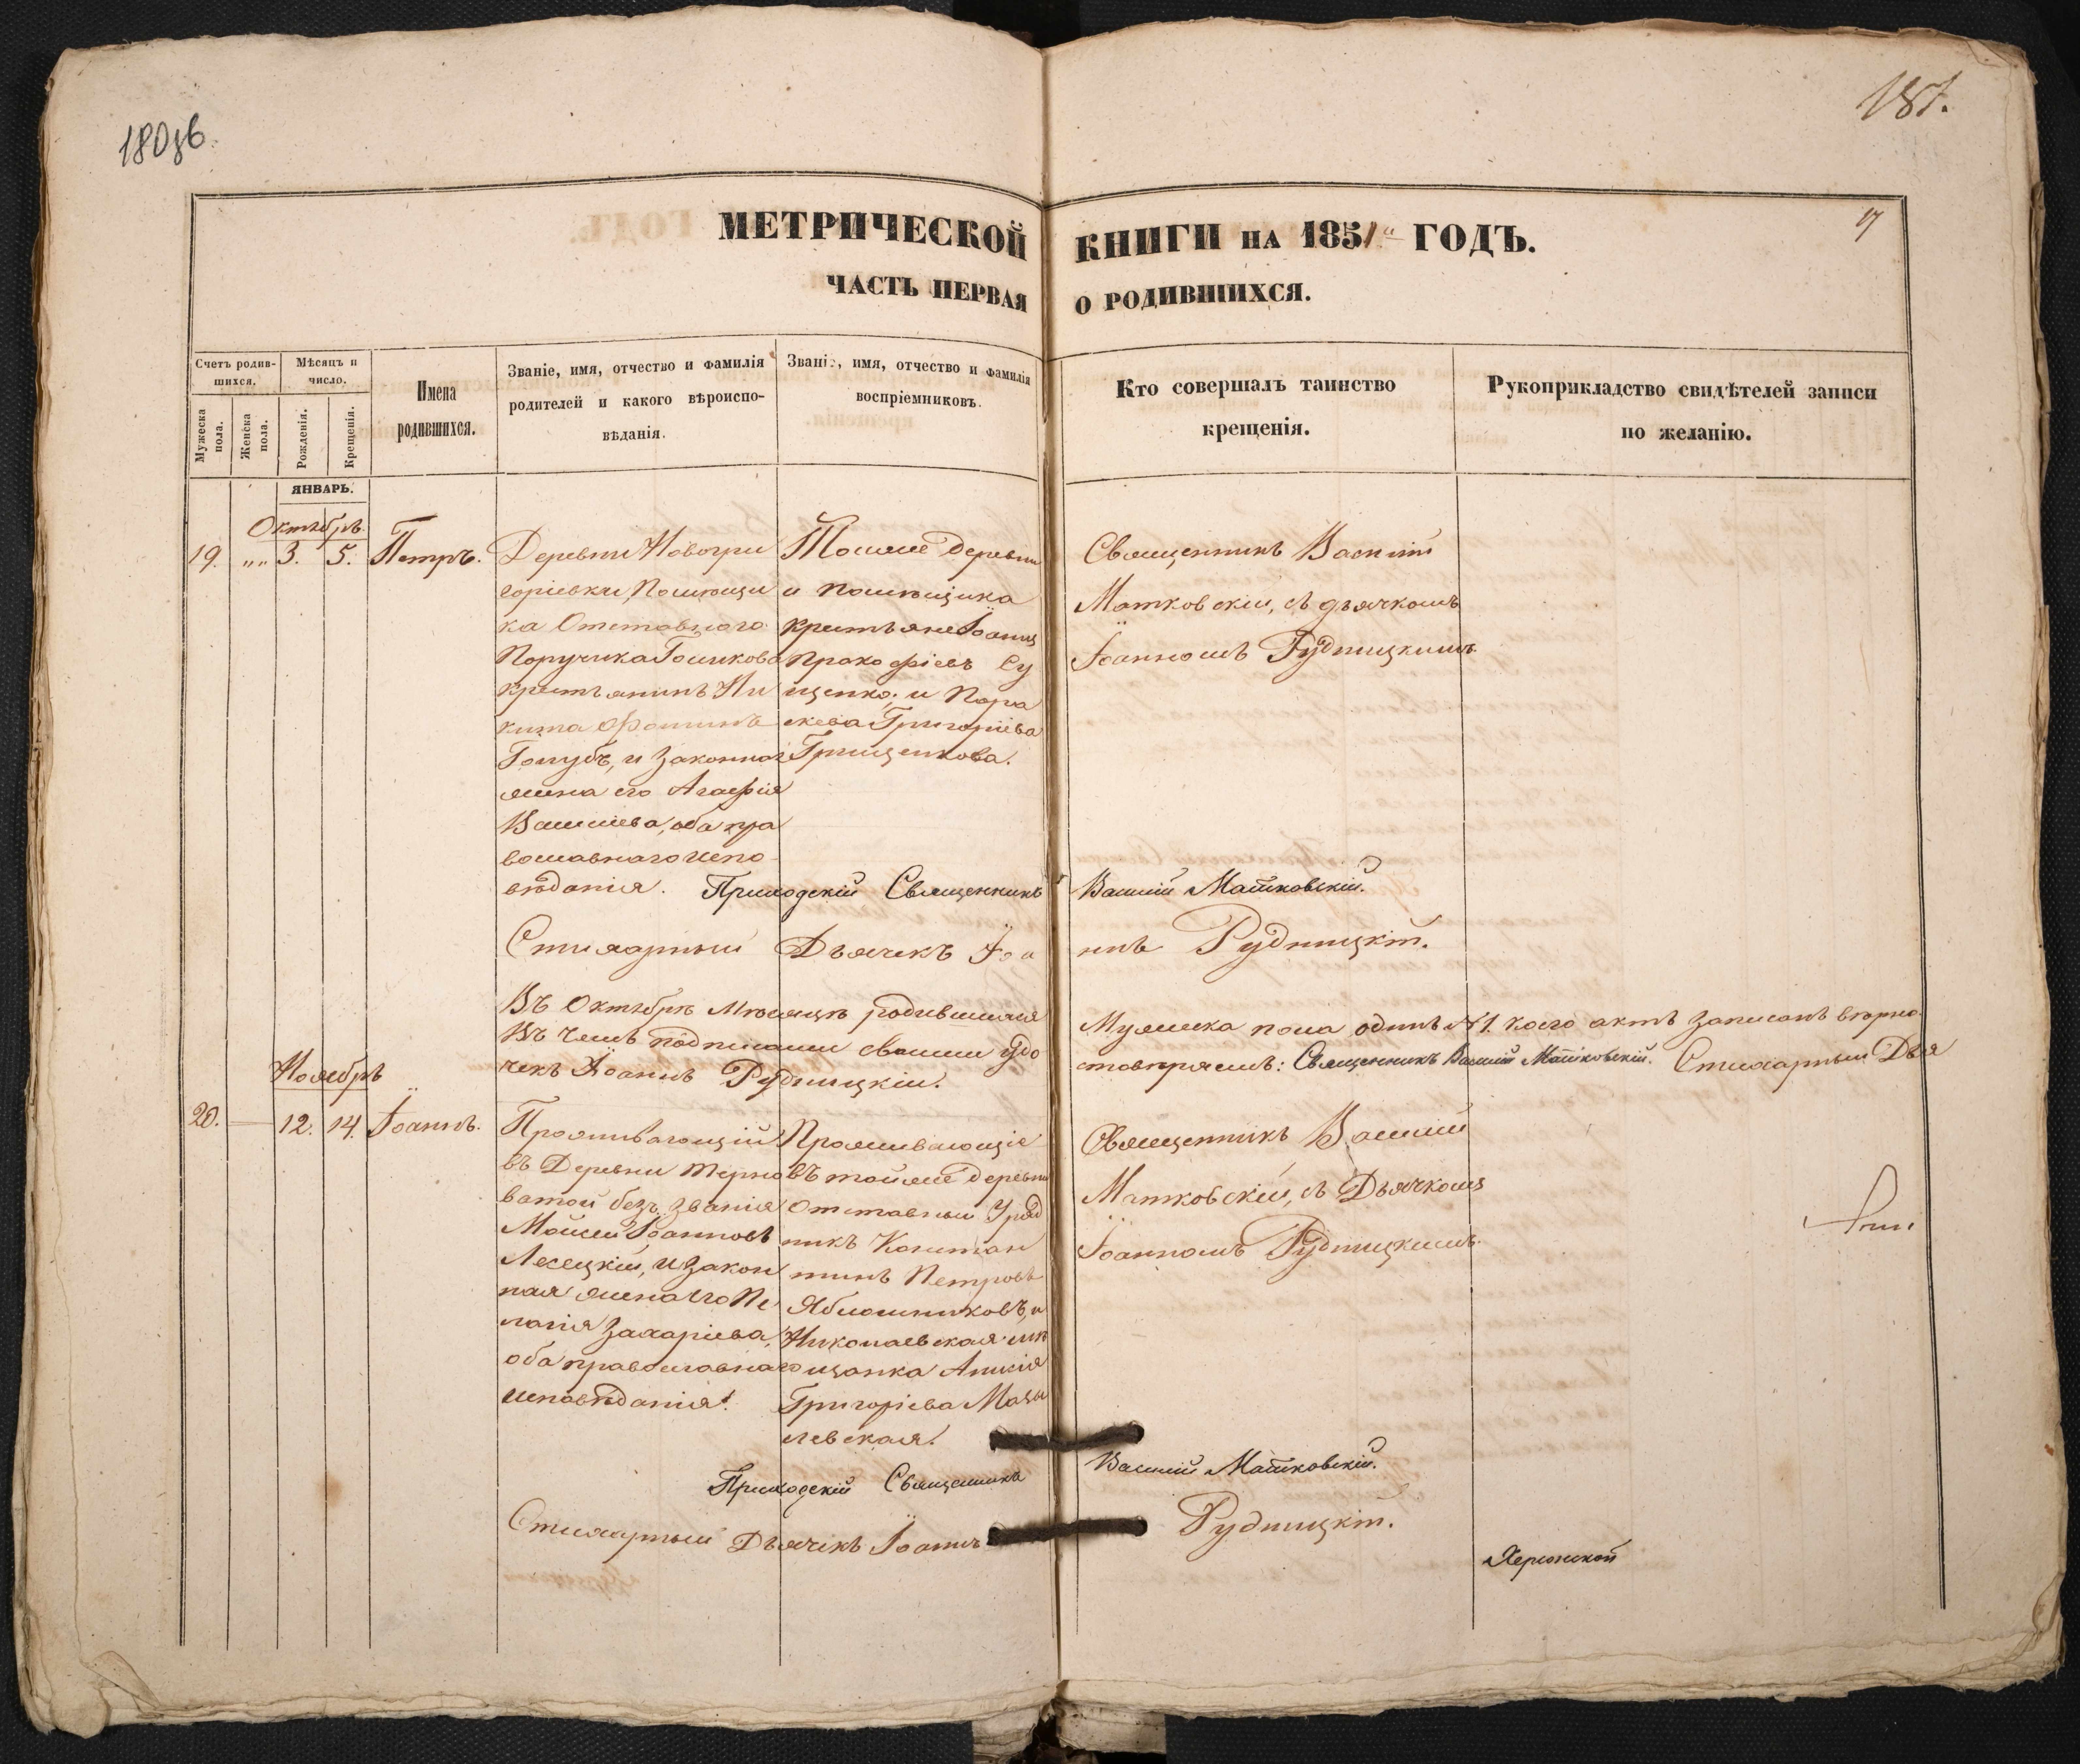 180зв.
187.
17
МЕТРИЧЕСКОЙ КНИГИ НА 1851 ГОДЪ.
ЧАСТЬ ПЕРВАЯ О РОДИВШИХСЯ.
Счетъ родив-
шихся.
Мужеска
пола.
Женска
пола.
Мѣсяцъ и
число.
Рожденія.
Крещенія.
Имена
родившихся.
Званіе, имя, отчество и фамилія
родителей и какого вѣроиспо-
вѣданія.
Званіе, имя, отчество и фамилія
воспріемниковъ.
Кто совершалъ таинство
крещенія.
Рукоприкладство свидѣтелей записи
по желанію.
ЯНВАРЬ.
Октябрь
19. „„ 3. 5. Петръ.
Деревни Новогри
горіевки, Помѣщи
ка Отставного
Поручика Голикова
крестьянинъ Ни
кита Фоминъ
Голубъ, и законная
жена его Агафія
Василіева, оба пра
вославнаго испо
вѣданія.
Тойже деревни
и помѣщика
крестьяне Іоаннъ
Прокофіевъ Су
щенко; и Пара
скева Григоріева
Грищенкова.
Священникъ Василій
Матковскій, съ дьячкомъ
Іоанномъ Рудницкимъ.
Приходскій Священникъ Василій Матковскій.
Стихарный Дьячекъ Іоа ннъ Рудницкій.
Въ Октябрѣ Мѣсяцѣ родившихся Мужеска пола одинъ №1. коего актъ записанъ вѣрно
Въ чемъ подписами своими удо стовѣряемъ: Священникъ Василій Матковскій. Стихарный Дья
чекъ Іоаннъ Рудницкій.
Ноябрь
20. 12. 14. Іоаннъ.
Проживающій
въ Деревни Терно
ватой безъ званія
Моисей Іоанновъ
Лесецкій, и закон
ная жена его Пе
лагія Захаріева,
оба православнаго
исповѣданія.
Проживающіе
въ тойже деревни
Отставный Уряд
никъ Констан
тинъ Петровъ
Яблошниковъ, и
Николаевская мѣ
щанка Анисія
Григоріева Мазы
левская.
Священникъ Василій
Матковскій, съ Дьячкомъ
Іоанномъ Рудницкимъ.
Приходскій Священникъ Василій Матковскій.
Стихарный Дьячікъ Іоаннъ Рудницкій.
Херсонской